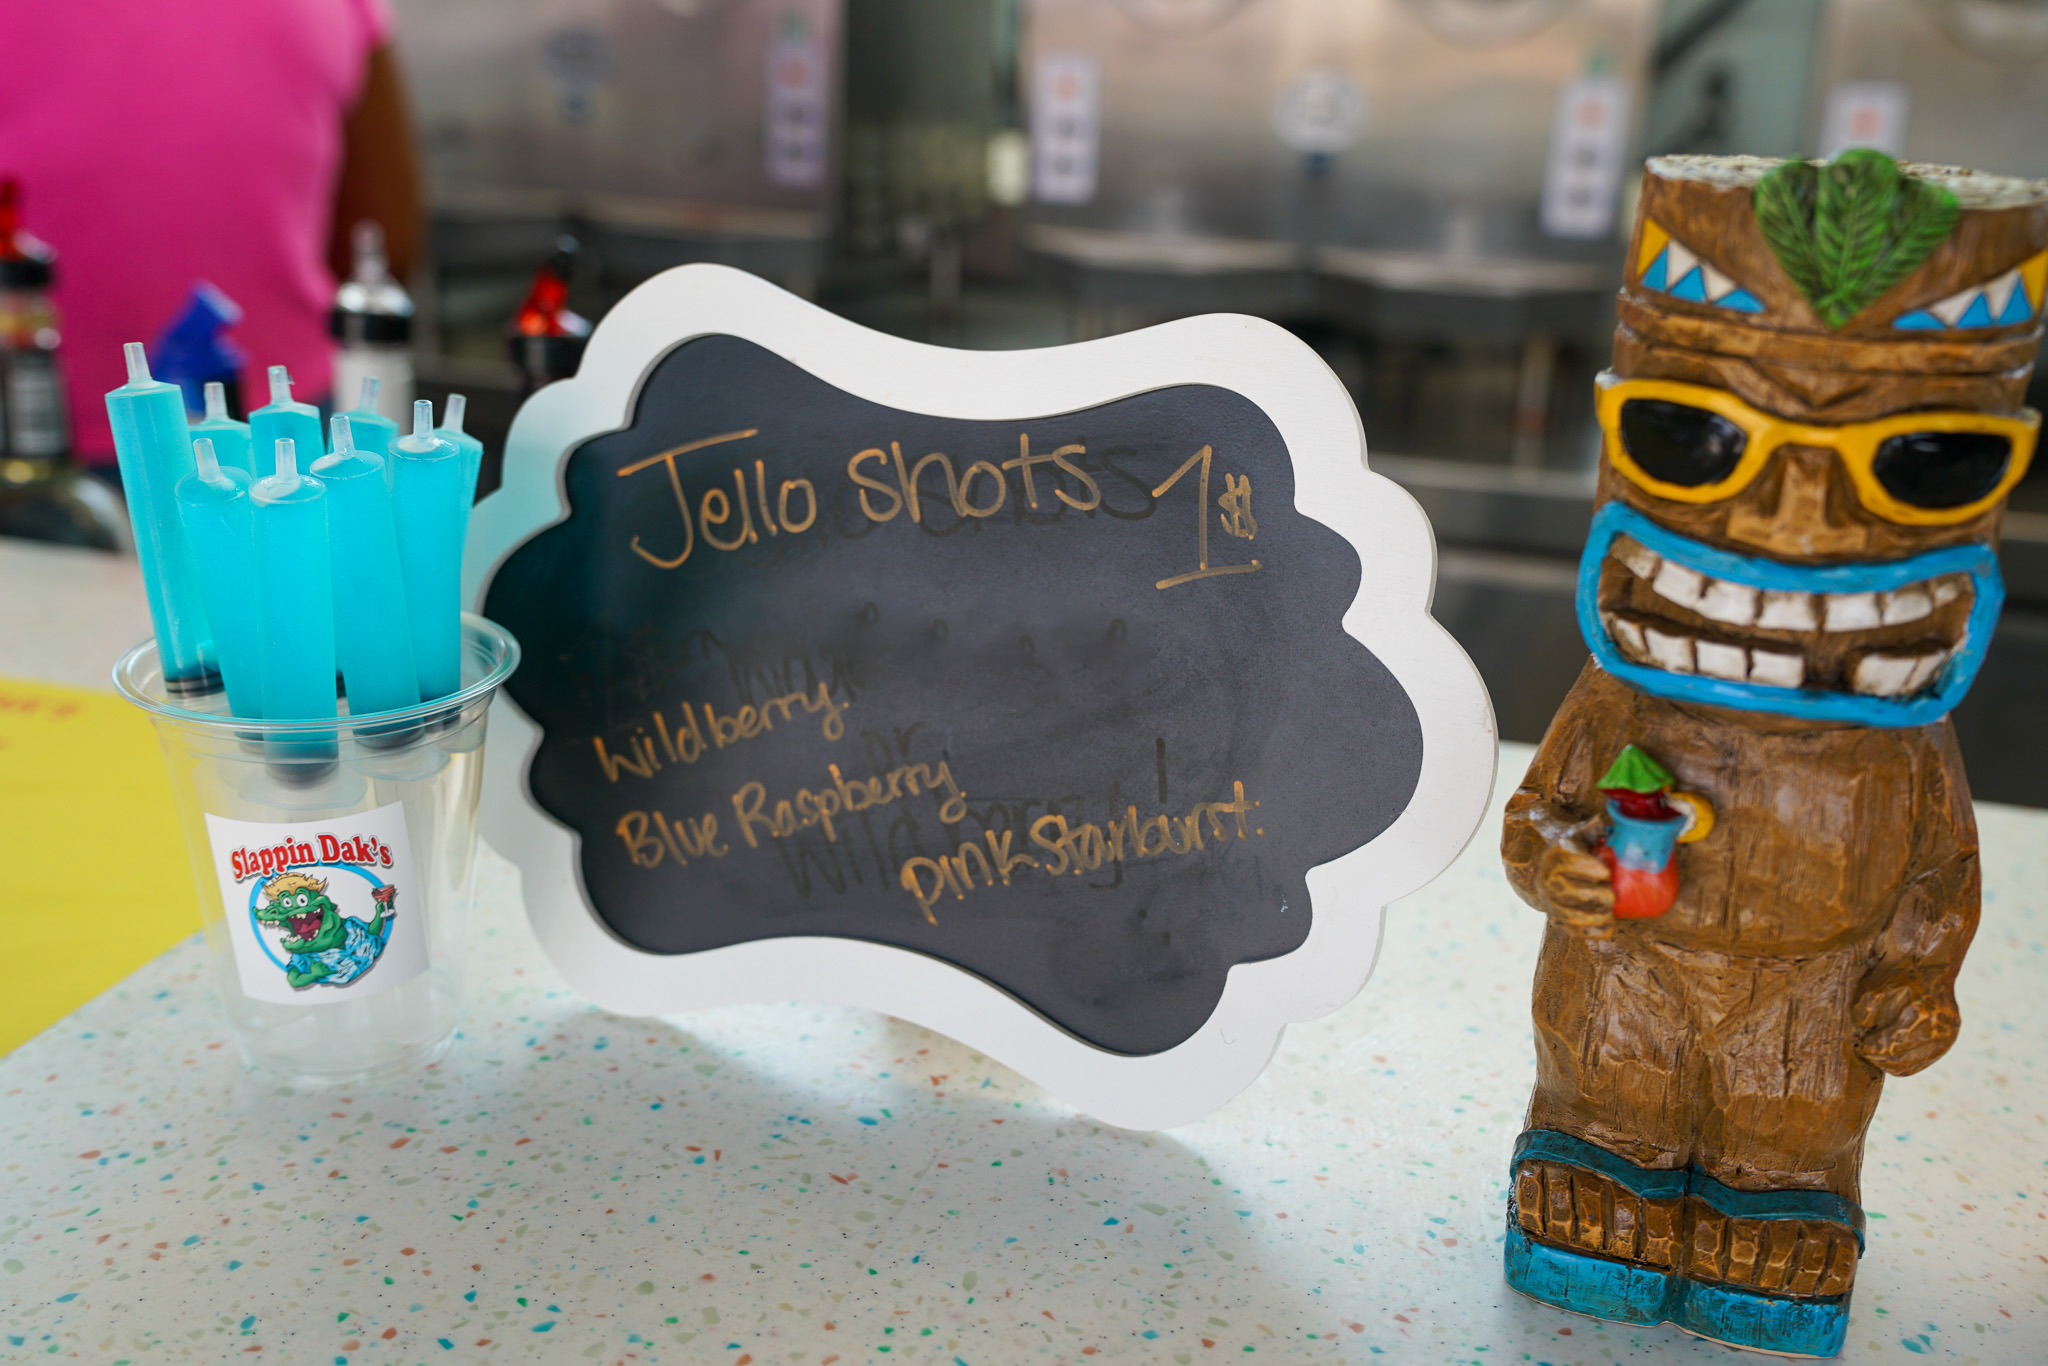 Jello shots 1$
Wildberry.
Blue Raspberry
Pink Starburst.
Slappin Dak's